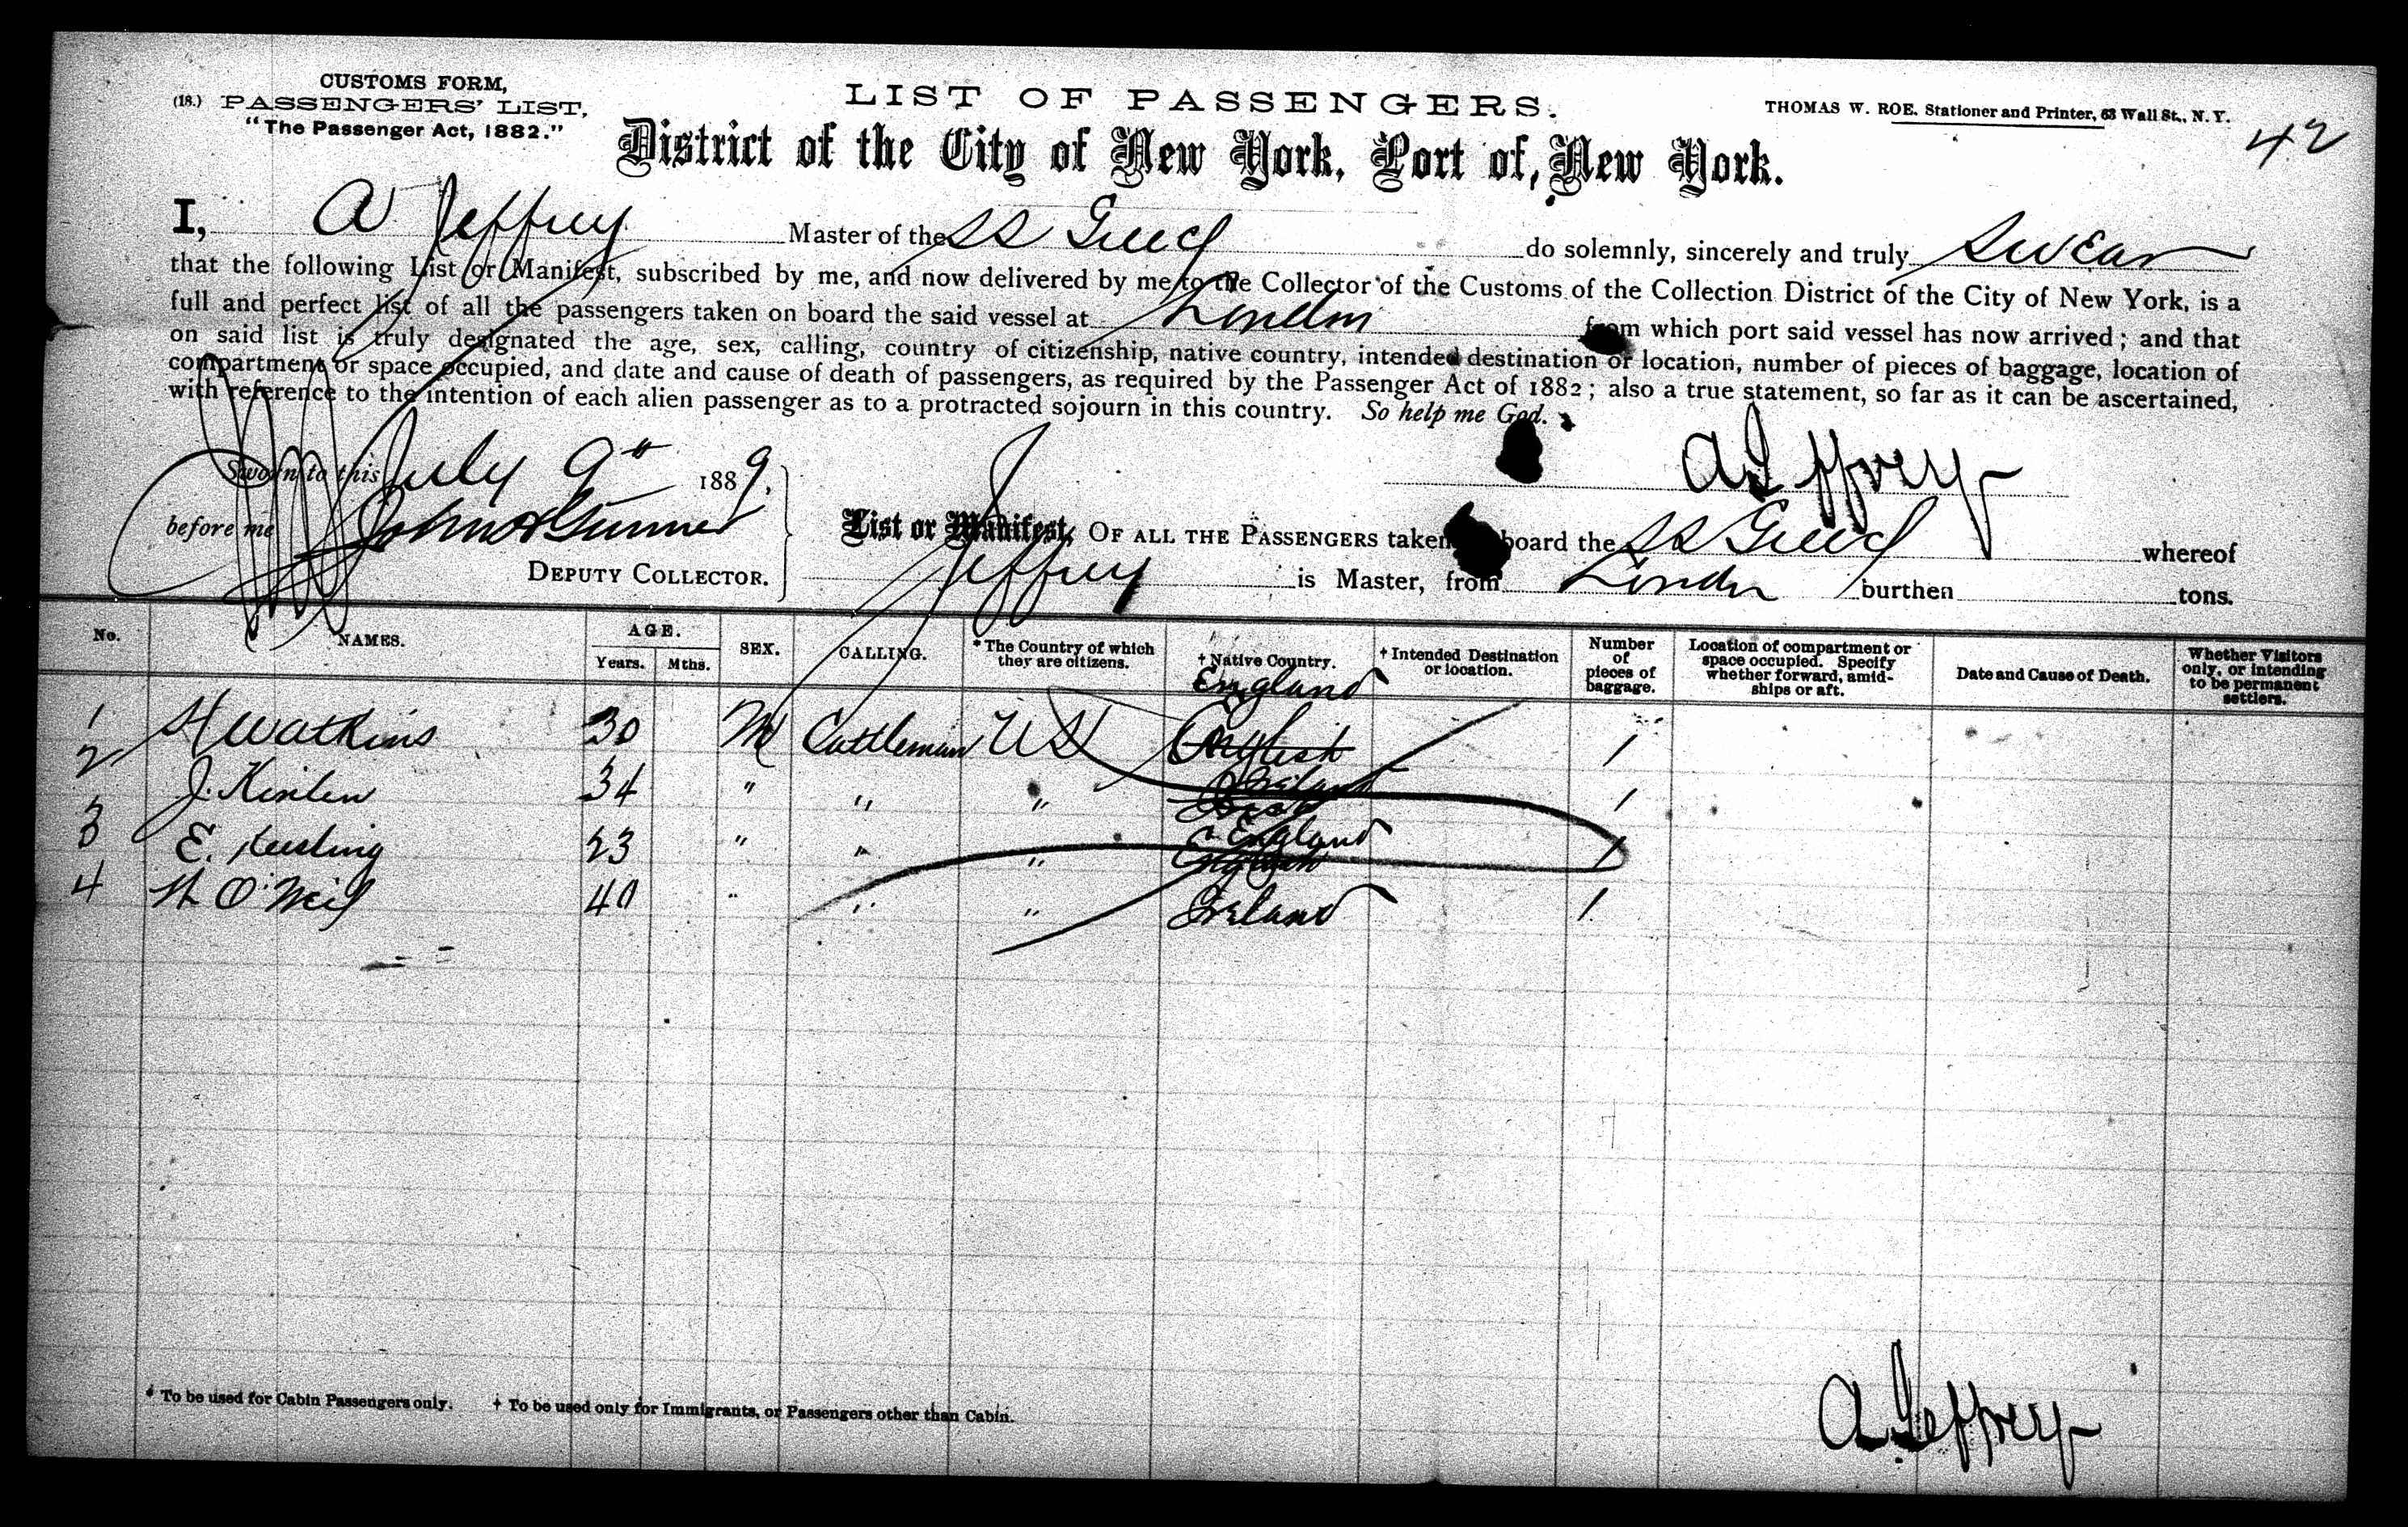 CUSTOMS FORM,
(18.) PASSENGERS' LIST,
"The Passenger Act, 1882."
LIST OF PASSENGERS.
THOMAS W. ROE. Stationer and Printer, 63 Wall St., N. Y.
42
District of the City of New York, Port of, New York.
I, A Jeffrey Master of the SS Greece do solemnly, sincerely and truly swear
that the following List or Manifest, subscribed by me, and now delivered by me to the Collector of the Customs of the Collection District of the City of New York, is a
full and perfect list of all the passengers taken on board the said vessel at London from which port said vessel has now arrived; and that
on said list is truly designated the age, sex, calling, country of citizenship, native country, intended destination or location, number of pieces of baggage, location of
compartment or space occupied, and date and cause of death of passengers, as required by the Passenger Act of 1882; also a true statement, so far as it can be ascertained,
with reference to the intention of each alien passenger as to a protracted sojourn in this country. So help me God.
Sworn to this July 9th 1889.
A Jeffrey
before me John
DEPUTY COLLECTOR.
List or Manifest, OF ALL THE PASSENGERS taken board the SS Greece whereof
Jeffrey is Master, from London burthen tons.
No. NAMES. AGE. Years. Mths. SEX. CALLING. * The Country of which they are citizens. † Native Country. † Intended Destination or location. Number of pieces of baggage. Location of compartment or space occupied. Specify whether forward, amidships or aft. Date and Cause of Death. Whether Visitors only, or intending to be permanent settlers.
England
1 H Watkins 30 M Cattleman US English 1
Ireland
2 J. 34 " " " 1
England
3 E. Keesling 23 " " " English 1
4 O'Neil 40 " " " Ireland 1
* To be used for Cabin Passengers only. † To be used only for Immigrants, or Passengers other than Cabin.
A Jeffrey